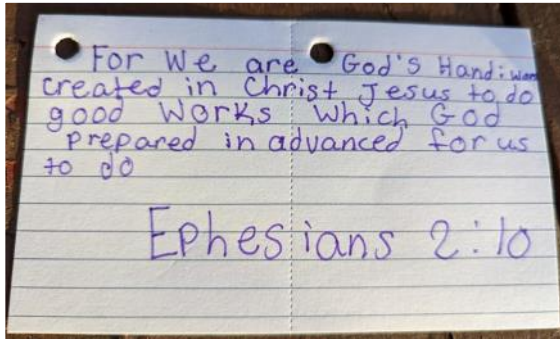 For We are God's Hand: work
created in Christ Jesus to do
good Works which God
prepared in advanced for us
to do
Ephesians 2:10